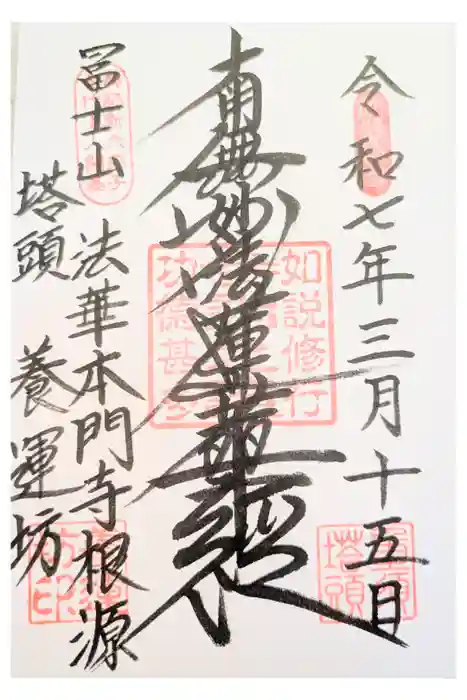 令和七年三月十五日
南無妙法蓮華経
冨士山
法華本門寺根源
塔頭 養運坊
如説修行
功徳甚多
塔頭